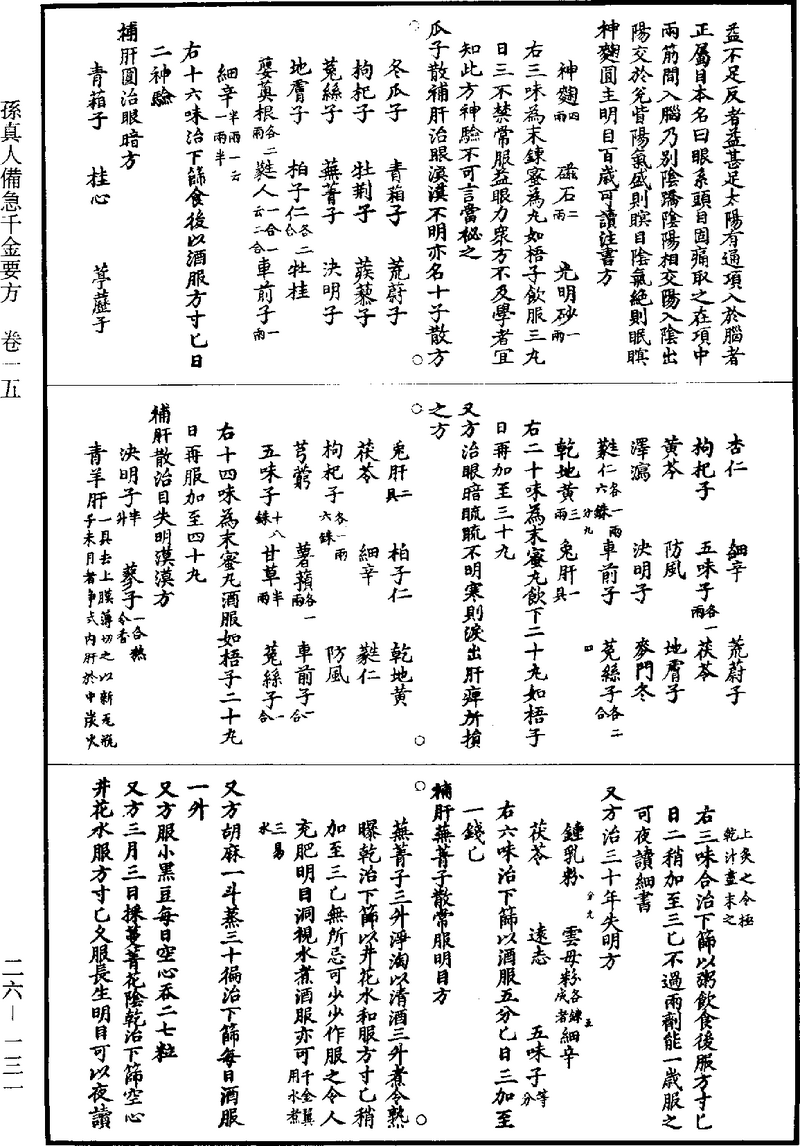 益不足反者益甚足太陽有通項入於腦者
正屬目本名曰眼系頭目固痛取之在項中
兩筋間入腦乃別陰蹻陰陽相交陽入陰出
陽交於兌眥陽氣盛則瞑目陰氣絕則眠瞑
神麴圓主明目百歲可讀注書方
神麴四兩 磁石二兩 光明砂一兩
右三味為末鍊蜜為丸如梧子飲服三丸
日三不禁常服益眼力衆方不及學者宜
知此方神驗不可言當秘之
瓜子散補肝治眼漠漠不明亦名十子散方
冬瓜子 青葙子 茺蔚子
枸杞子 牡荆子 蒺藜子
菟絲子 蕪菁子 決明子
地膚子 柏子仁各二合 牡桂
蕤蕤根各二兩 蕤人一合一云二合 車前子一兩
細辛半兩一云一兩半
右十六味治下篩食後以酒服方寸匕日
二神驗
補肝圓治眼暗方
青葙子 桂心 葶藶子
杏仁 細辛 茺蔚子
枸杞子 五味子各一兩 茯苓
黃芩 防風 地膚子
澤瀉 決明子 麥門冬
蕤仁各一兩六銖 車前子 菟絲子各二合
乾地黃三兩 兔肝一具
右二十味為末蜜丸飲下二十丸如梧子
日再加至三十九
又方治眼暗䀮䀮不明寒則淚出肝痺所損
之方
兔肝二具 柏子仁 乾地黃
茯苓 細辛 蕤仁
枸杞子各一兩六銖 防風
芎藭 薯蕷各一兩 車前子二合
五味子十八銖 甘草半兩 菟絲子一合
右十四味為末蜜丸酒服如梧子二十丸
日再服加至四十丸
補肝散治目失明漠漠方
決明子半升 蓼子一合熬令香
青羊肝一具去上膜薄切之以新瓦瓶子未用者淨拭內肝於中炭火
上炙之令極乾汁盡末之
右三味合治下篩以粥飲食後服方寸匕
日二稍加至三匕不過兩劑能一歲服之
可夜讀細書
又方治三十年失明方
鍾乳粉 雲母粉各鍊成者 細辛
茯苓 遠志 五味子等分
右六味治下篩以酒服五分匕日三加至
一錢匕
補肝蕪菁子散常服明目方
蕪菁子三升淨淘以清酒三升煮令熟
曝乾治下篩以井花水和服方寸匕稍
加至三匕無所忌可少少作服之令人
充肥明目洞視水煮酒服亦可千金翼用水煮
三易水
又方胡麻一斗蒸三十徧治下篩每日酒服
一升
又方服小黑豆每日空心吞二七粒
又方三月三日採蔓菁花陰乾治下篩空心
井花水服方寸匕久服長生明目可以夜讀
孫真人備急千金要方 卷一五
二六—一三一